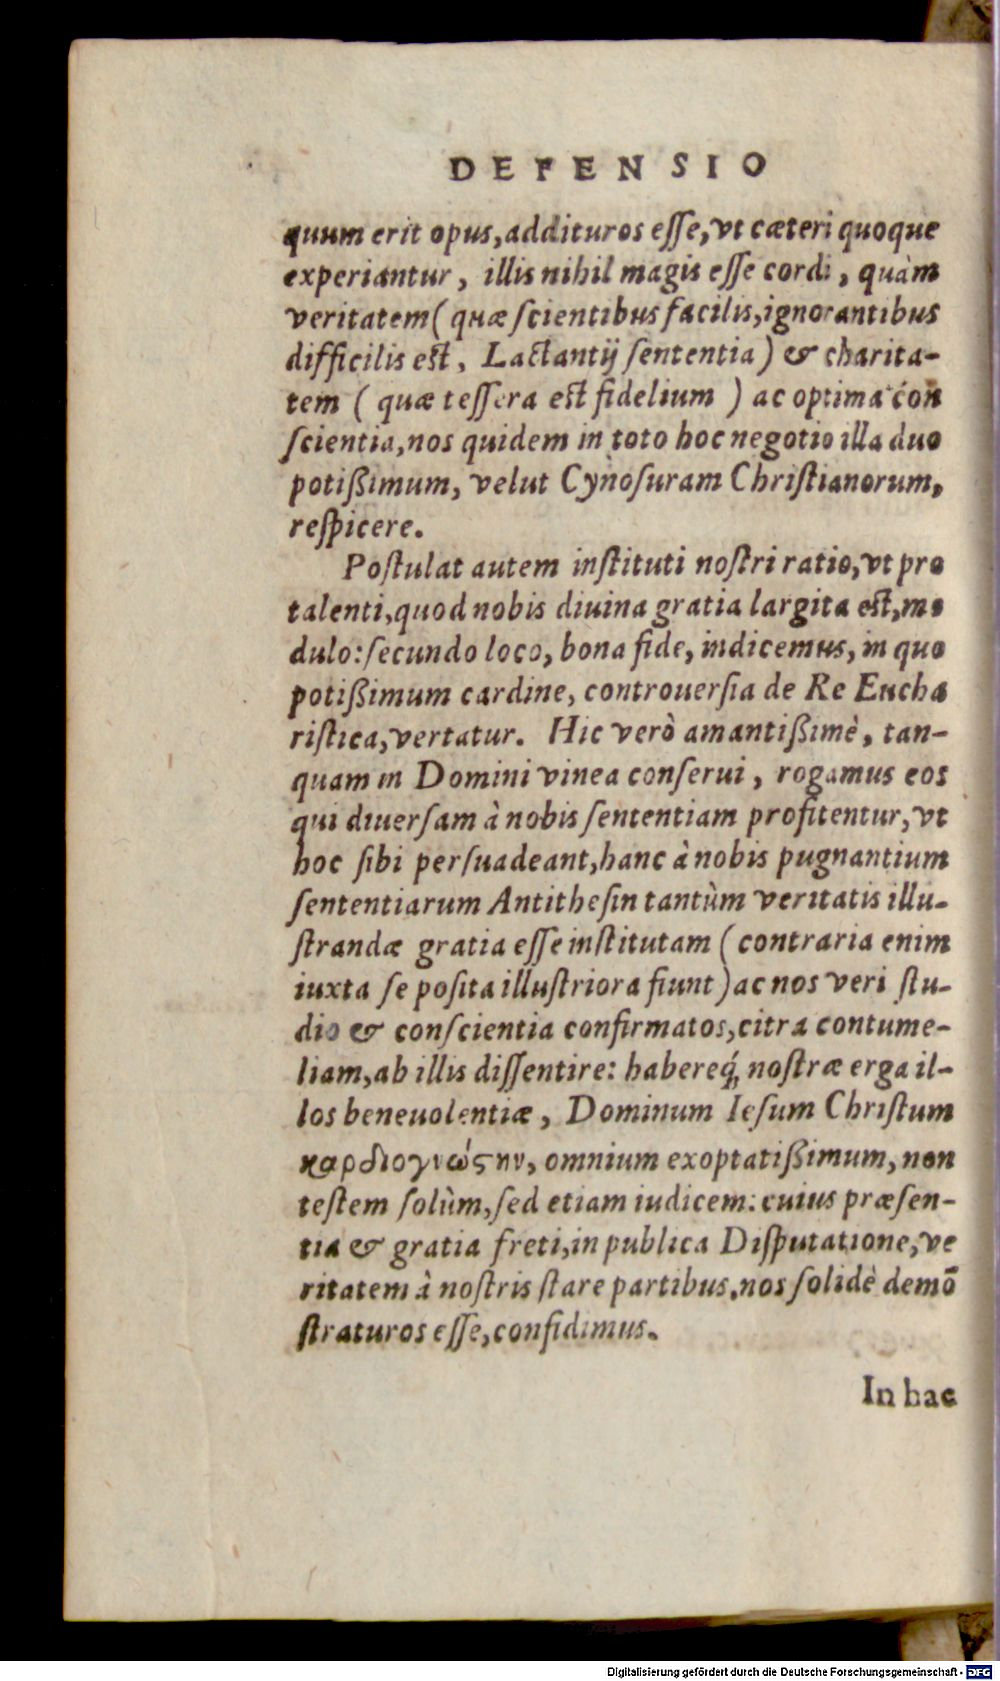 DEFENSIO
quum erit opus, addituros esse, vt cæteri quoque
experiantur, illis nihil magis esse cordi, quàm
veritatem (quæ scientibus facilis, ignorantibus
difficilis est, Lactantij sententia) & charita-
tem (quæ tessera est fidelium) ac optima con
scientia, nos quidem in toto hoc negotio illa duo
potißimum, velut Cynosuram Christianorum,
respicere.
Postulat autem instituti nostri ratio, vt pro
talenti, quod nobis diuina gratia largita est, mo
dulo: secundo loco, bona fide, indicemus, in quo
potißimum cardine, controuersia de Re Eucha
ristica, vertatur. Hic verò amantißimè, tan-
quam in Domini vinea conserui, rogamus eos
qui diuersam à nobis sententiam profitentur, vt
hoc sibi persuadeant, hanc à nobis pugnantium
sententiarum Antithesin tantùm veritatis illu-
strandæ gratia esse institutam (contraria enim
iuxta se posita illustriora fiunt) ac nos veri stu-
dio & conscientia confirmatos, citra contume-
liam, ab illis dissentire: habereq́; nostræ erga il-
los beneuolentiæ, Dominum Iesum Christum
καρδιογνώςην, omnium exoptatißimum, non
testem solùm, sed etiam iudicem: cuius præsen-
tia & gratia freti, in publica Disputatione, ve
ritatem à nostris stare partibus, nos solidè demō
straturos esse, confidimus.
In hac
Digitalisierung gefördert durch die Deutsche Forschungsgemeinschaft - DFG